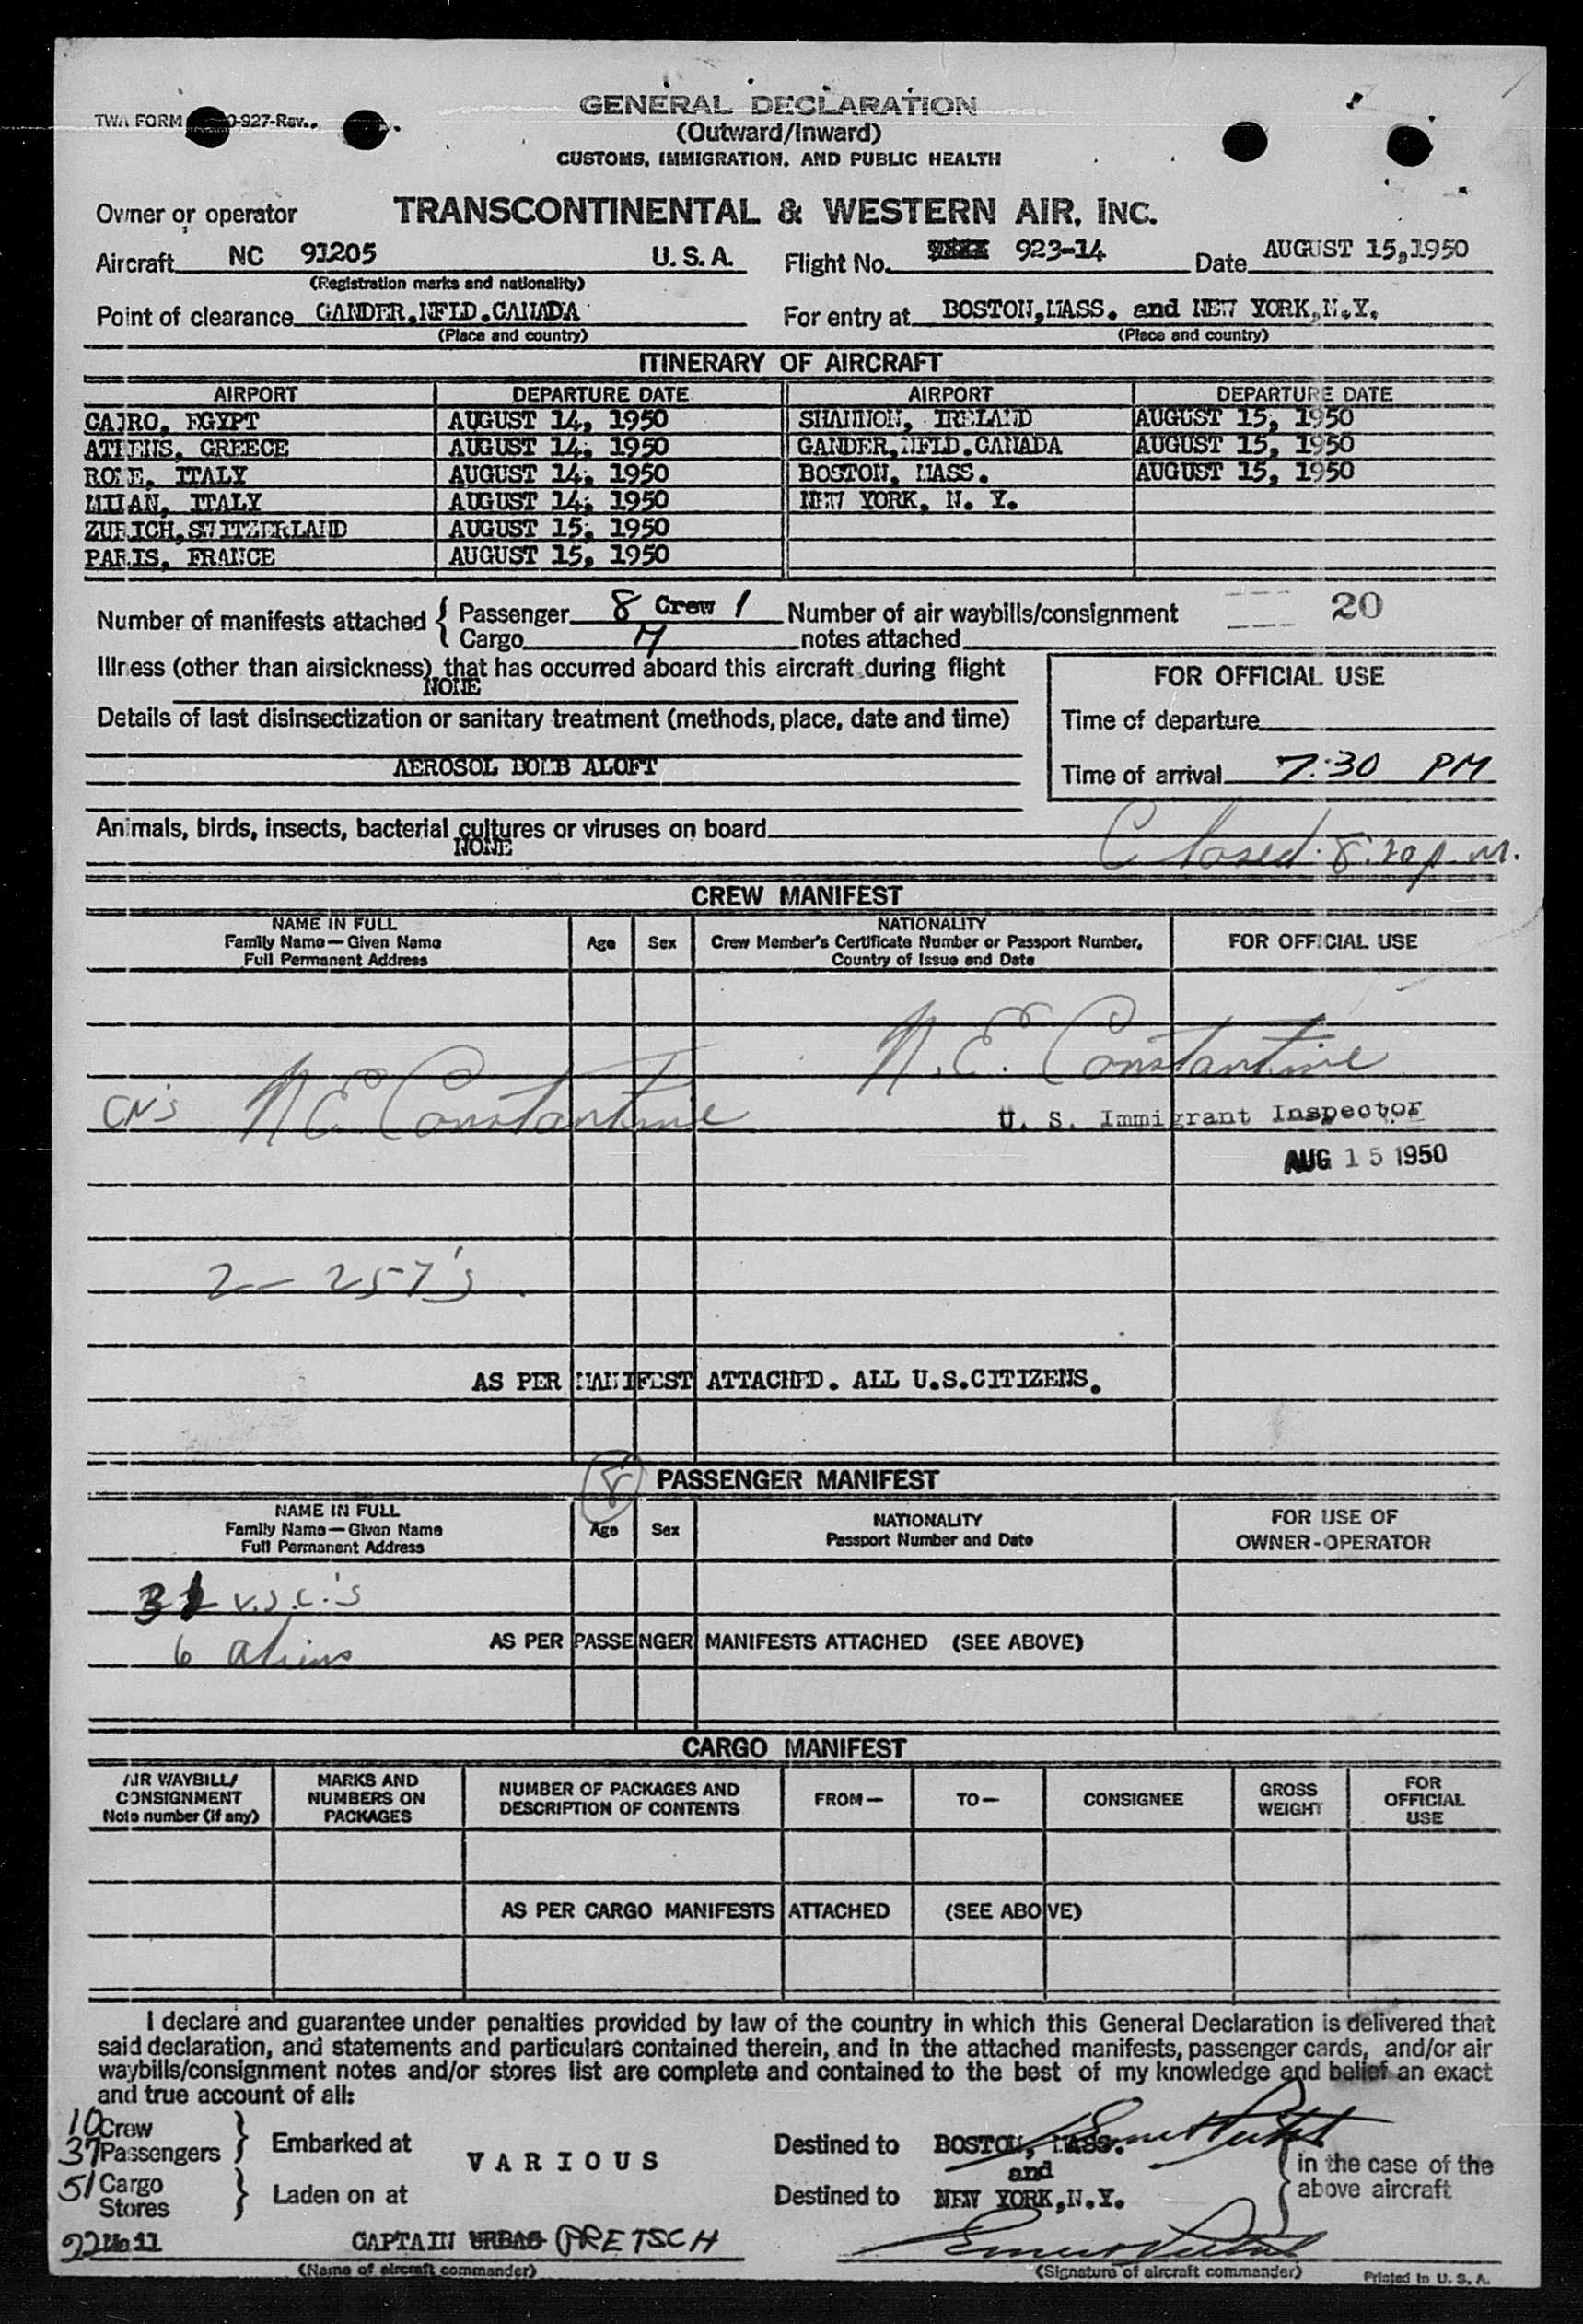 GENERAL DECLARATION
TWA FORM -927-Rev.
(Outward/Inward)
CUSTOMS, IMMIGRATION, AND PUBLIC HEALTH
Owner or operator TRANSCONTINENTAL & WESTERN AIR, INC.
Aircraft NC 91205 U.S.A. Flight No. 923-14 Date AUGUST 15,1950
(Registration marks and nationality)
Point of clearance GANDER,NFLD.CANADA For entry at BOSTON,MASS. and NEW YORK,N.Y.
(Place and country) (Place and country)
ITINERARY OF AIRCRAFT
AIRPORT DEPARTURE DATE AIRPORT DEPARTURE DATE
CAIRO, EGYPT AUGUST 14, 1950 SHANNON, IRELAND AUGUST 15, 1950
ATHENS, GREECE AUGUST 14, 1950 GANDER,NFLD.CANADA AUGUST 15, 1950
ROME, ITALY AUGUST 14, 1950 BOSTON, MASS. AUGUST 15, 1950
MILAN, ITALY AUGUST 14, 1950 NEW YORK, N. Y.
ZURICH,SWITZERLAND AUGUST 15, 1950
PARIS, FRANCE AUGUST 15, 1950
Number of manifests attached { Passenger 8 Crew 1 Number of air waybills/consignment 20
Cargo notes attached
Illness (other than airsickness) that has occurred aboard this aircraft during flight
NONE
FOR OFFICIAL USE
Details of last disinsectization or sanitary treatment (methods, place, date and time)
Time of departure
AEROSOL BOMB ALOFT
Time of arrival 7:30 PM
Animals, birds, insects, bacterial cultures or viruses on board
NONE
Closed 8:20 p.m.
CREW MANIFEST
NAME IN FULL
Family Name—Given Name
Full Permanent Address
Age Sex
NATIONALITY
Crew Member's Certificate Number or Passport Number,
Country of Issue and Date
FOR OFFICIAL USE
N. E. Constantine
CN's N E Constantine
U. S. Immigrant Inspector
AUG 15 1950
2— 257's
AS PER MANIFEST ATTACHED. ALL U.S.CITIZENS.
8
PASSENGER MANIFEST
NAME IN FULL
Family Name—Given Name
Full Permanent Address
Age Sex
NATIONALITY
Passport Number and Date
FOR USE OF
OWNER-OPERATOR
31 U.S.C.'s
6 aliens AS PER PASSENGER MANIFESTS ATTACHED (SEE ABOVE)
CARGO MANIFEST
AIR WAYBILL/
CONSIGNMENT
Note number (if any)
MARKS AND
NUMBERS ON
PACKAGES
NUMBER OF PACKAGES AND
DESCRIPTION OF CONTENTS
FROM— TO— CONSIGNEE
GROSS
WEIGHT
FOR
OFFICIAL
USE
AS PER CARGO MANIFESTS ATTACHED (SEE ABOVE)
I declare and guarantee under penalties provided by law of the country in which this General Declaration is delivered that
said declaration, and statements and particulars contained therein, and in the attached manifests, passenger cards, and/or air
waybills/consignment notes and/or stores list are complete and contained to the best of my knowledge and belief an exact
and true account of all:
10 Crew
37 Passengers } Embarked at VARIOUS Destined to BOSTON, MASS.
and
in the case of the
above aircraft
51 Cargo
Stores } Laden on at Destined to NEW YORK,N.Y.
22 Mail CAPTAIN URBAS PRETSCH
(Name of aircraft commander) (Signature of aircraft commander) Printed in U. S. A.